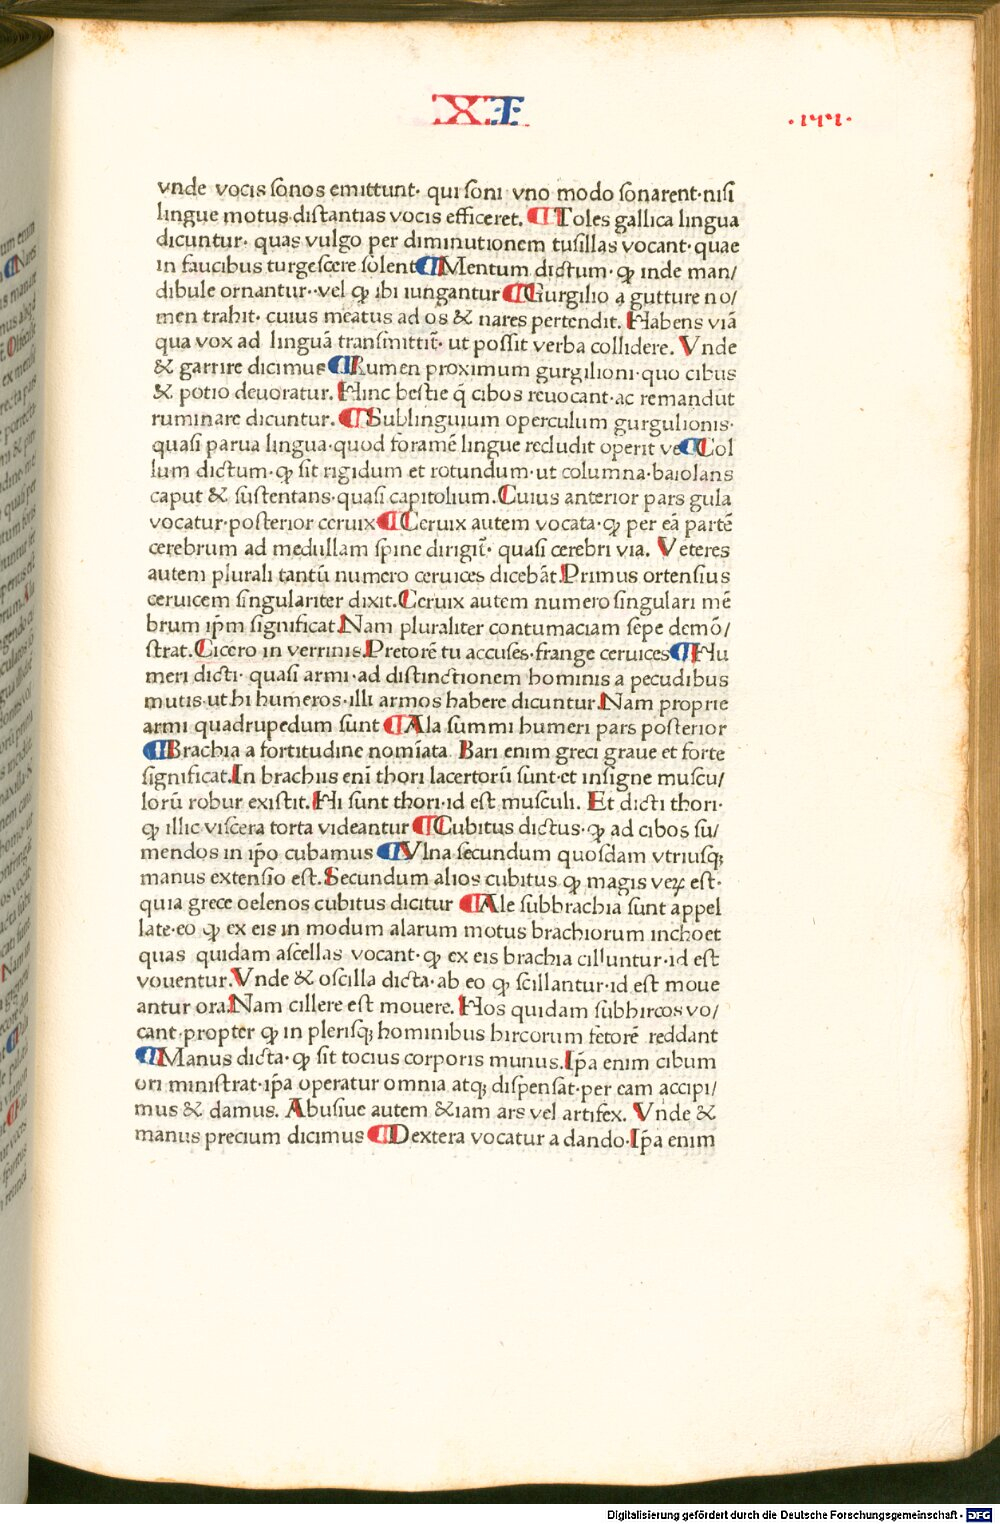 XI
·141·
vnde vocis sonos emittunt· qui soni vno modo sonarent·nisi
lingue motus distantias vocis efficeret. ¶Toles gallica lingua
dicuntur· quas vulgo per diminutionem tusillas vocant·quae
in faucibus turgescere solent¶Mentum dictum· ꝙ inde man/
dibule ornantur··vel ꝙ ibi iungantur¶Gurgilio a gutture no/
men trahit· cuius meatus ad os & nares pertendit. Habens viā
qua vox ad linguā transmittit̄· ut possit verba collidere. Vnde
& garrire dicimus¶Rumen proximum gurgilioni·quo cibus
& potio deuoratur. Hinc bestie q̄ cibos reuocant·ac remandūt
ruminare dicuntur. ¶Sublinguium operculum gurgulionis·
quasi parua lingua·quod foramē lingue recludit operit ve¶Col
lum dictum·ꝙ sit rigidum et rotundum·ut columna·baiolans
caput & sustentans·quasi capitolium.Cuius anterior pars gula
vocatur·posterior ceruix¶Ceruix autem vocata·ꝙ per eā partē
cerebrum ad medullam spine dirigit̄· quasi cerebri via. Veteres
autem plurali tantū numero ceruices dicebāt.Primus ortensius
ceruicem singulariter dixit.Ceruix autem numero singulari mē
brum ip̄m significat.Nam pluraliter contumaciam sepe demō/
strat.Cicero in verrinis.Pretorē tu accuses·frange ceruices¶Hu
meri dicti· quasi armi·ad distinctionem hominis a pecudibus
mutis·ut hi humeros·illi armos habere dicuntur.Nam proprie
armi quadrupedum sunt ¶Ala summi humeri pars posterior
¶Brachia a fortitudine nomīata Bari enim greci graue et forte
significat.In brachiis enī thori lacertorū sunt·et insigne muscu/
lorū robur existit.Hi sunt thori·id est musculi. Et dicti thori·
ꝙ illic viscera torta videantur ¶Cubitus dictus·ꝙ ad cibos su/
mendos in ip̄o cubamus ¶Vlna secundum quosdam vtriusq;
manus extensio est.Secundum alios cubitus ꝙ magis veꝝ est·
quia grece oelenos cubitus dicitur ¶Ale subbrachia sunt appel
late·eo ꝙ ex eis in modum alarum motus brachiorum inchoet
quas quidam ascellas vocant·ꝙ ex eis brachia cilluntur·id est
vouentur.Vnde & oscilla dicta·ab eo ꝙ scillantur·id est moue
antur ora.Nam cillere est mouere.Hos quidam subhircos vo/
cant·propter ꝙ in plerisq; hominibus hircorum fetorē reddant
¶Manus dicta·ꝙ sit tocius corporis munus.Ip̄a enim cibum
ori ministrat·ip̄a operatur omnia atq; dispensat·per eam accipi/
mus & damus. Abusiue autem &iam ars vel artifex. Vnde &
manus precium dicimus ¶Dextera vocatur a dando·Ip̄a enim
Digitalisierung gefördert durch die Deutsche Forschungsgemeinschaft - DFG